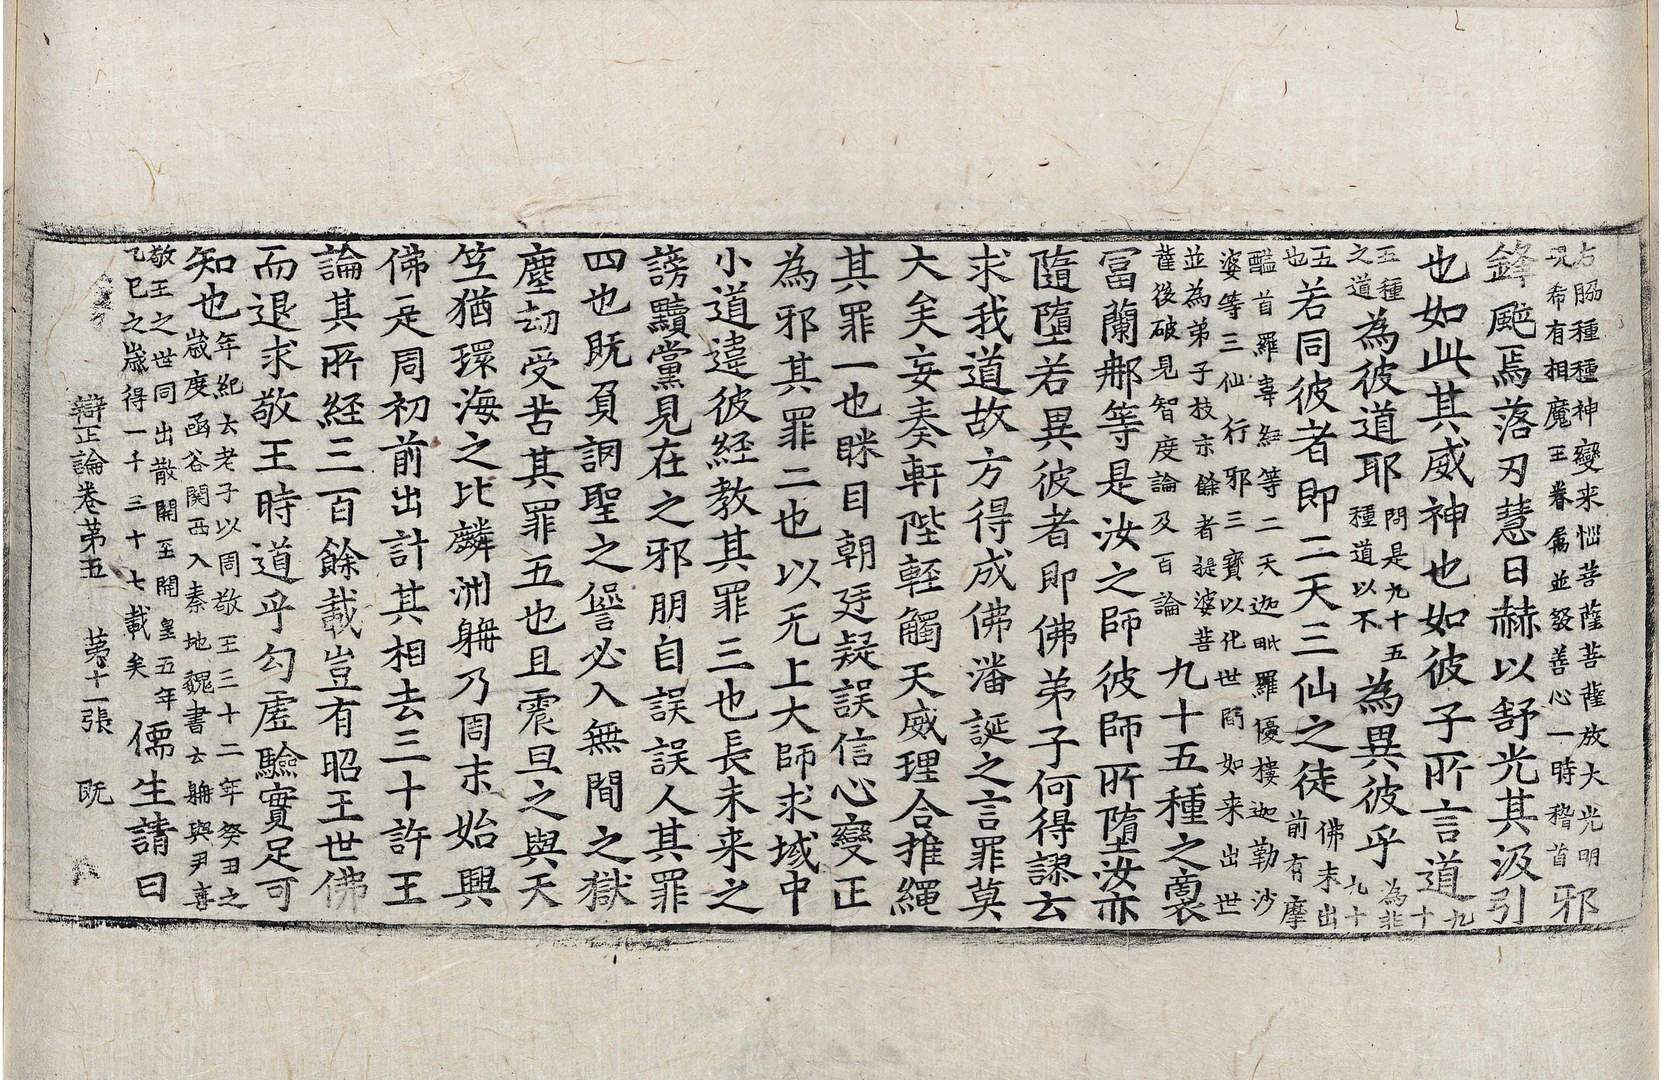 右脇種種神變来惱菩薩菩薩放大光明
現希有相魔王眷屬並發善心一時稽首 邪
鋒颰焉落刃慧日赫以舒光其汲引
也如此其威神也如彼子所言道 九十
五種之道 為彼道耶 問是九十五種道以不 為異彼乎 為非九十
五也 若同彼者即二天三仙之徒 佛未出前有摩
醯首羅韋紐等二天迦毗羅優樓迦勒沙
婆等三仙行邪三寶以化世間如来出世
並為弟子枝末餘者提婆菩
薩後破見智度論及百論 九十五種之裔
富蘭那等是汝之師彼師所墮汝亦
隨墮若異彼者即佛弟子何得謬云
求我道故方得成佛潘誕之言罪莫
大矣妄奏軒陛輕觸天威理合推繩
其罪一也眯目朝廷疑誤信心變正
為邪其罪二也以无上大師求域中
小道違彼經教其罪三也長未来之
謗黷黨見在之邪朋自誤誤人其罪
四也既負詷聖之諐必入無間之獄
塵劫受苦其罪五也且震旦之與天
笁猶環海之比麟洲耼乃周末始興
佛是周初前出計其相去三十許王
論其所經三百餘載豈有昭王世佛
而退求敬王時道乎勾虛驗實足可
知也 年紀云老子以周敬王三十二年癸丑之
歲度函谷関西入秦地魏書云耼與尹喜
敬王之世同出散關至開皇五年
乙巳之歲得一千三十七載矣 儒生請曰
辯正論卷第五 第十一張 既